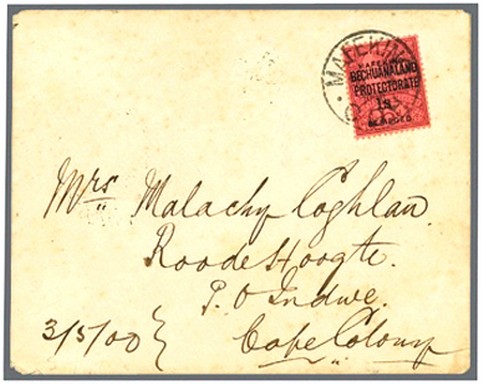 MAFEKING
MAFEKING
BECHUANALAND
PROTECTORATE
1s
BESIEGED
Mrs Malachy Coghlan.
Roodes Hoogte.
P.O Indwe.
3/5/00 } Cape Colony